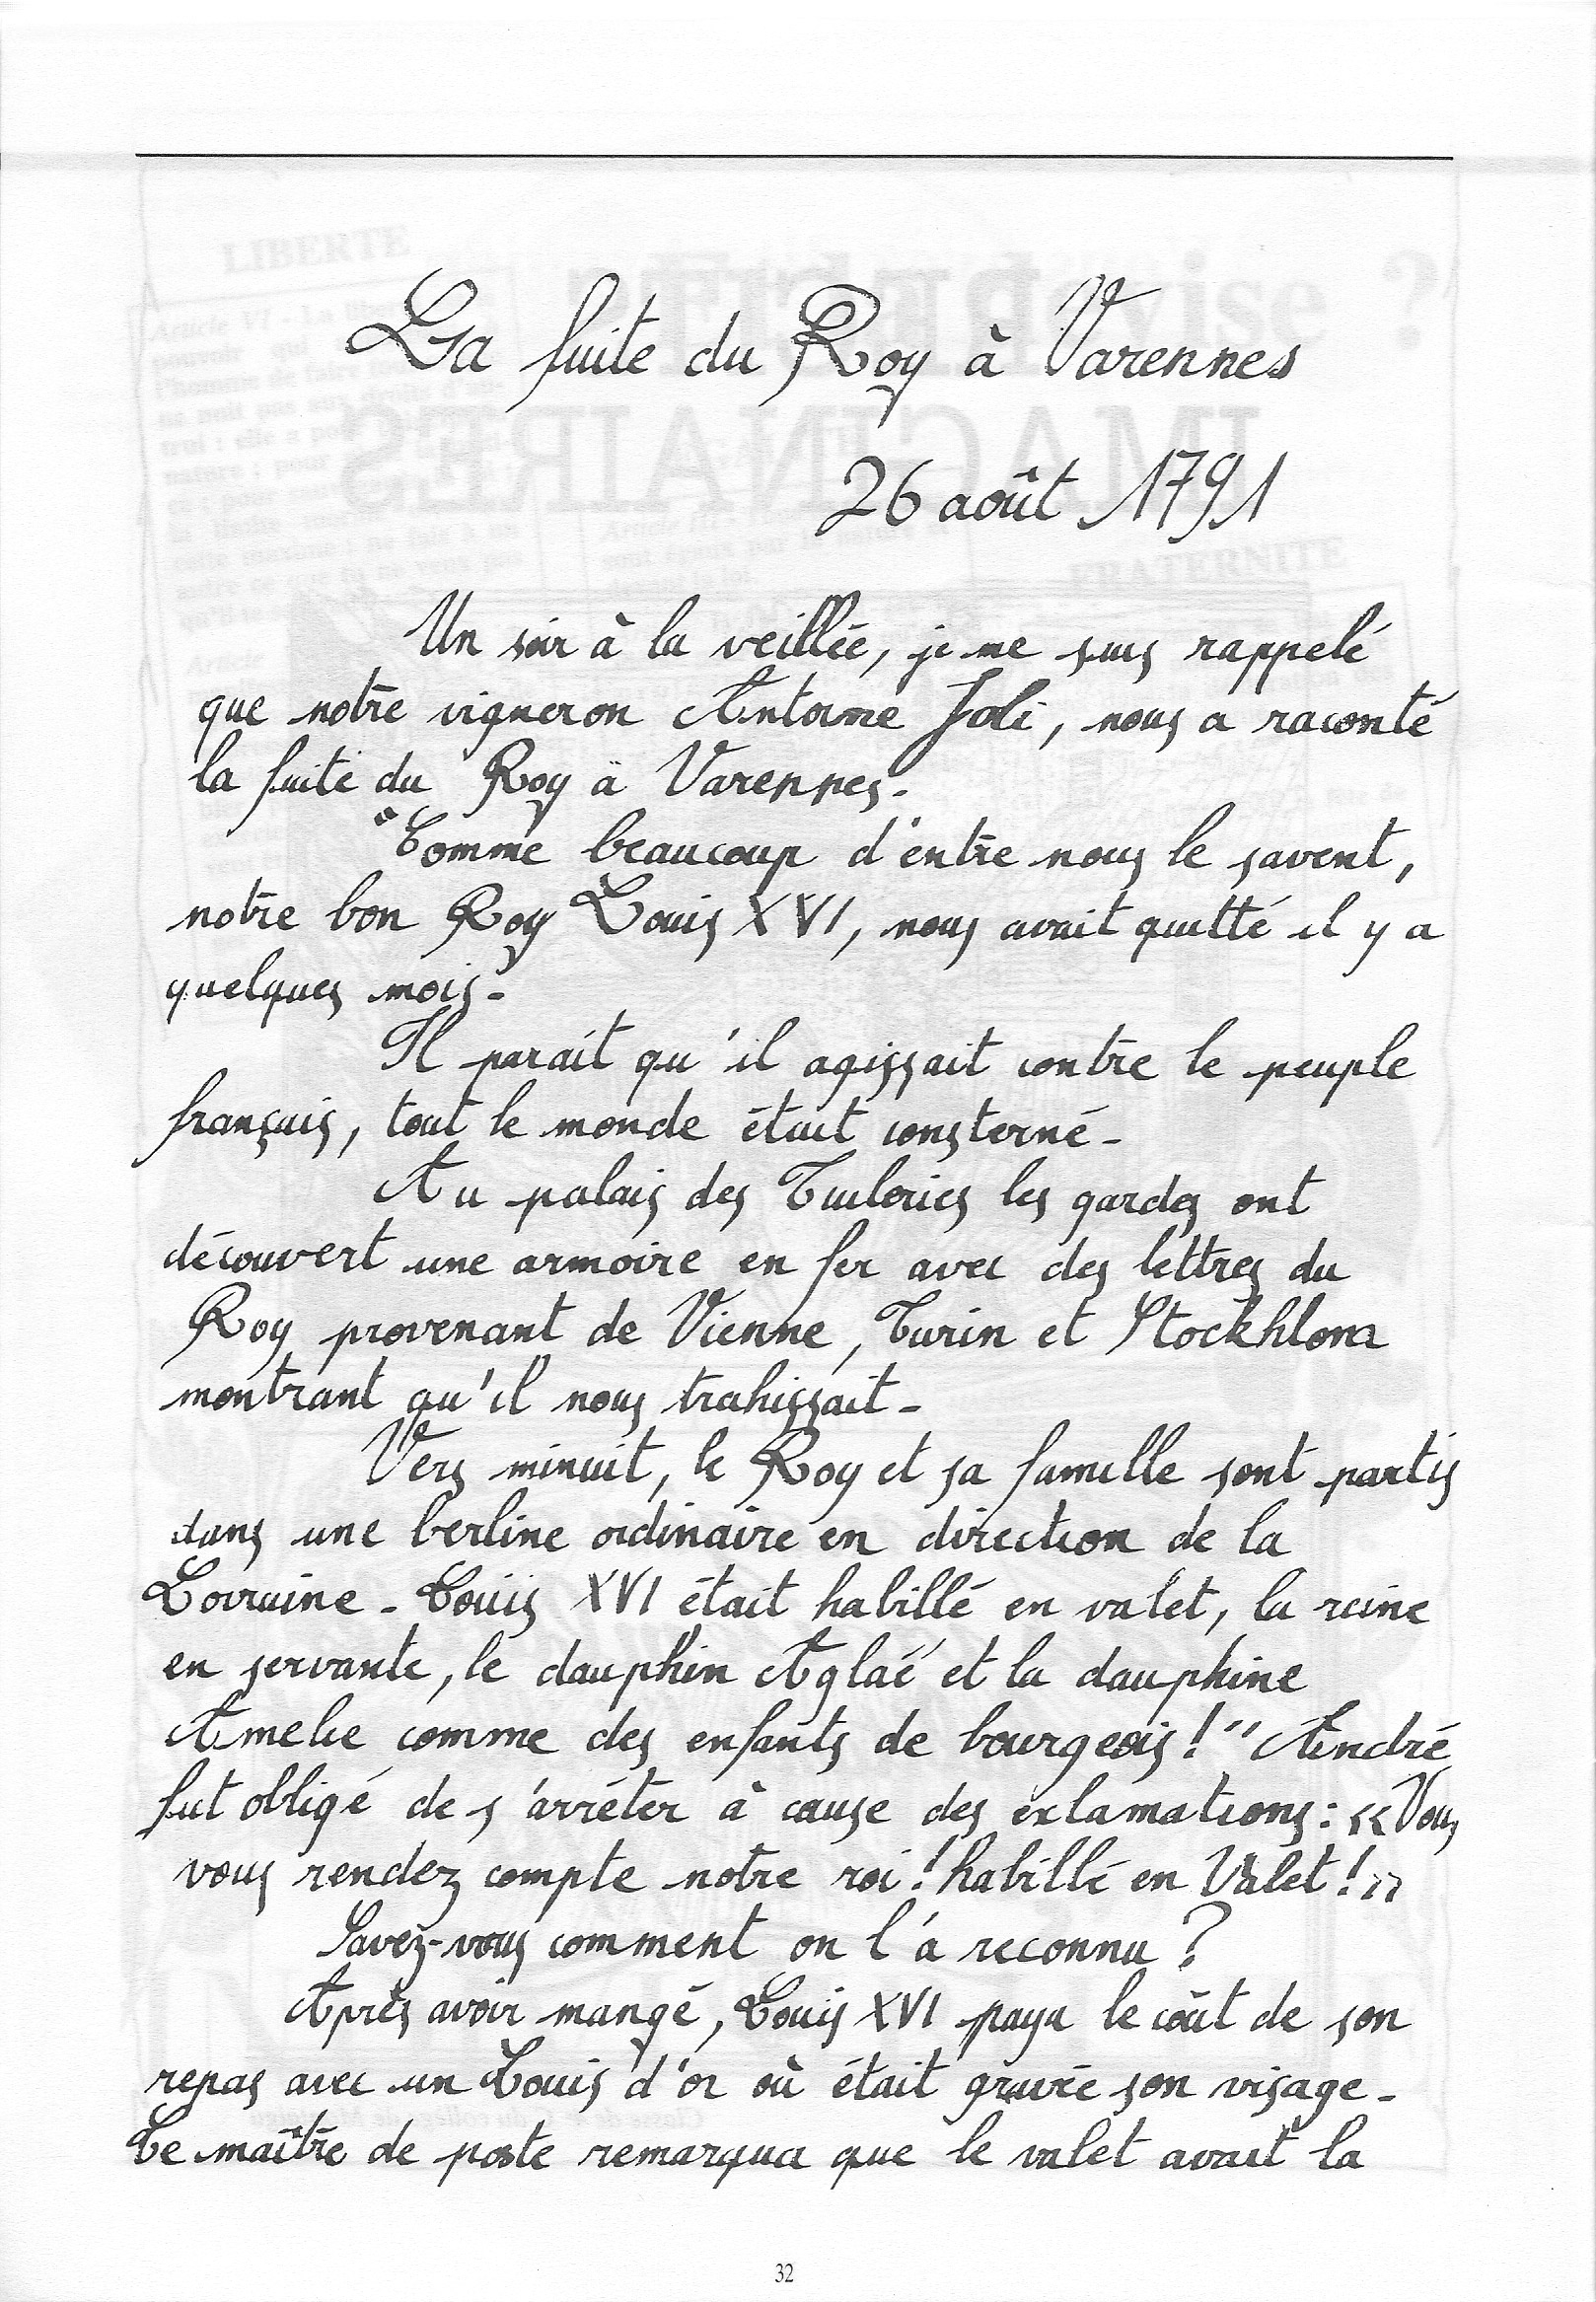 La fuite du Roy à Varennes
26 août 1791
Un soir à la veillée, je me suis rappelé
que notre vigneron Antoine Joli, nous a raconté
la fuite du Roy à Varennes.
"Comme beaucoup d'entre nous le savent,
notre bon Roy Louis XVI, nous avait quitté il y a
quelques mois.
Il parait qu'il agissait contre le peuple
français, tout le monde était consterné.
Au palais des Tuileries les gardes ont
découvert une armoire en fer avec des lettres du
Roy provenant de Vienne, Turin et Stockhlom
montrant qu'il nous trahissait.
Vers minuit, le Roy et sa famille sont partis
dans une berline ordinaire en direction de la
Lorraine. Louis XVI était habillé en valet, la reine
en servante, le dauphin Aglaé et la dauphine
Amelie comme des enfants de bourgeois!" André
fut obligé de s'arrêter à cause des exclamations: «Vous
vous rendez compte notre roi! habillé en Valet!»
Savez-vous comment on l'a reconnu?
Après avoir mangé, Louis XVI paya le coût de son
repas avec un Louis d'or où était gravé son visage.
Le maître de poste remarqua que le valet avait la
32